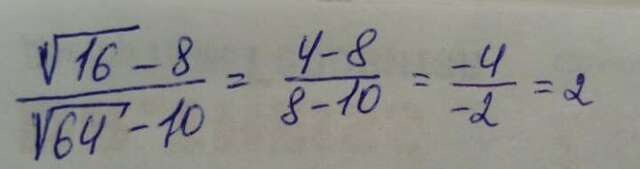 (√16 - 8)/(√64 - 10) = (4-8)/(8-10) = -4/-2 = 2